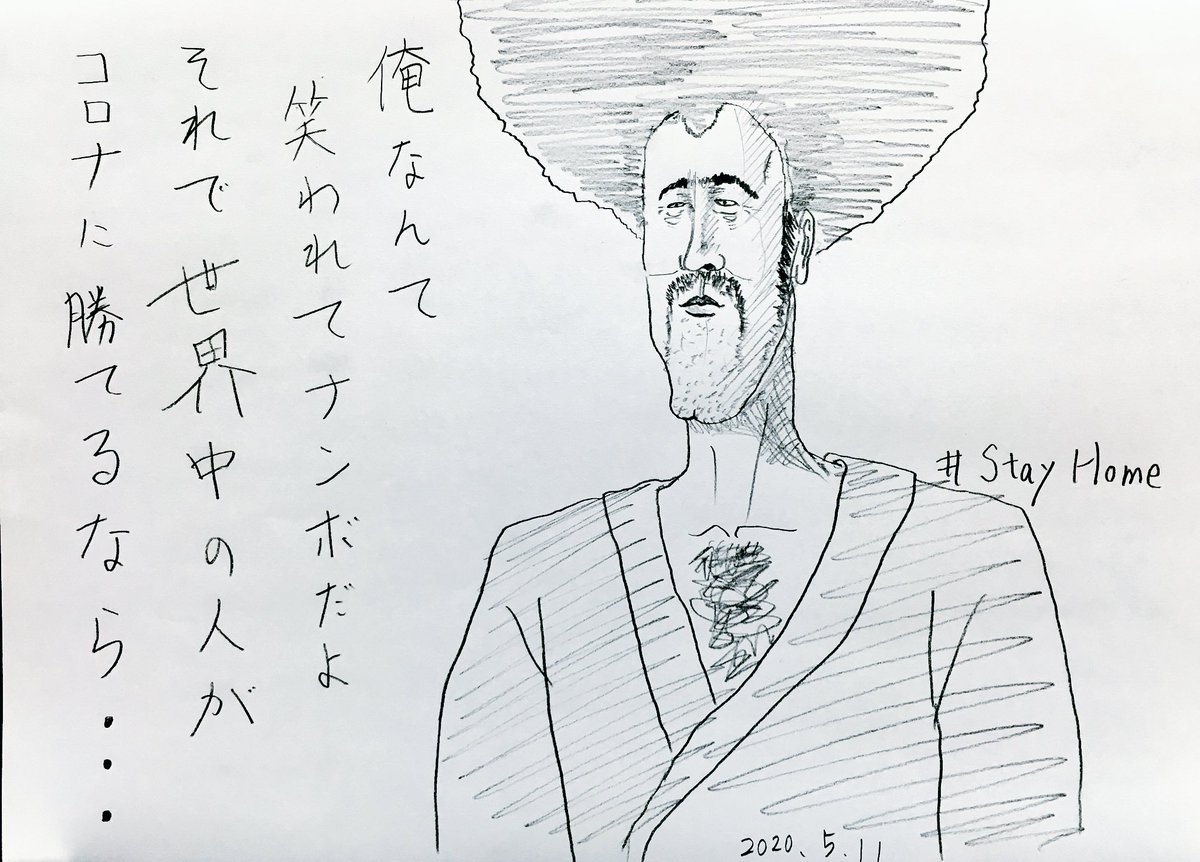 俺なんて
笑われてナンボだよ
それで世界中の人が
コロナに勝てるなら・・・
#Stay Home
2020.5.11